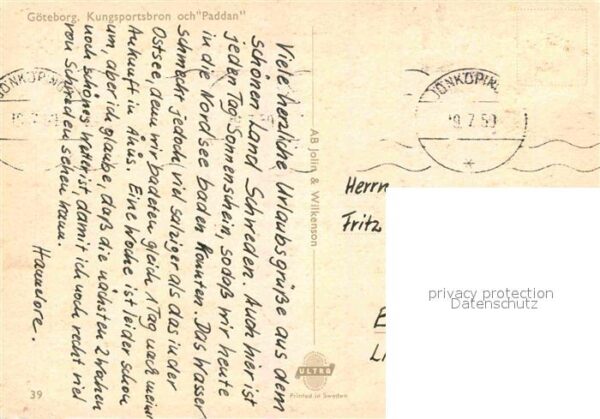 Göteborg. Kungsportsbron och "Paddan"
Viele herzliche Urlaubsgrüße aus dem
schönen Land Schweden. Auch hier ist
jeden Tag Sonnenschein, sodaß wir heute
in die Nordsee baden konnten. Das Wasser
schmeckt jedoch viel salziger als das in der
Ostsee, denn wir badeten gleich 1 Tag nach meiner
Ankunft in Åhus. Eine Woche ist leider schon
um, aber ich glaube, daß die nächsten 2 Wochen
noch schönes Wetter ist damit ich noch recht viel
von Schweden sehen kann.
Hannelore.
AB Jolin & Wilkenson
JÖNKÖPING
JÖNKÖPING
19.7.59
Herrn
Fritz
privacy protection
Datenschutz
ULTRA
Printed in Sweden
39